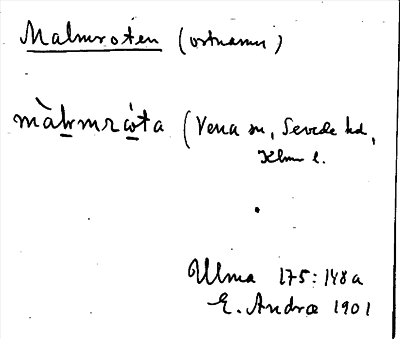 Malmroten (ortnamn)
màlmrȯ́ta (Vena sn, Sevede hd,
Klm l.
Ulma 175:148a
E. Andræ 1901